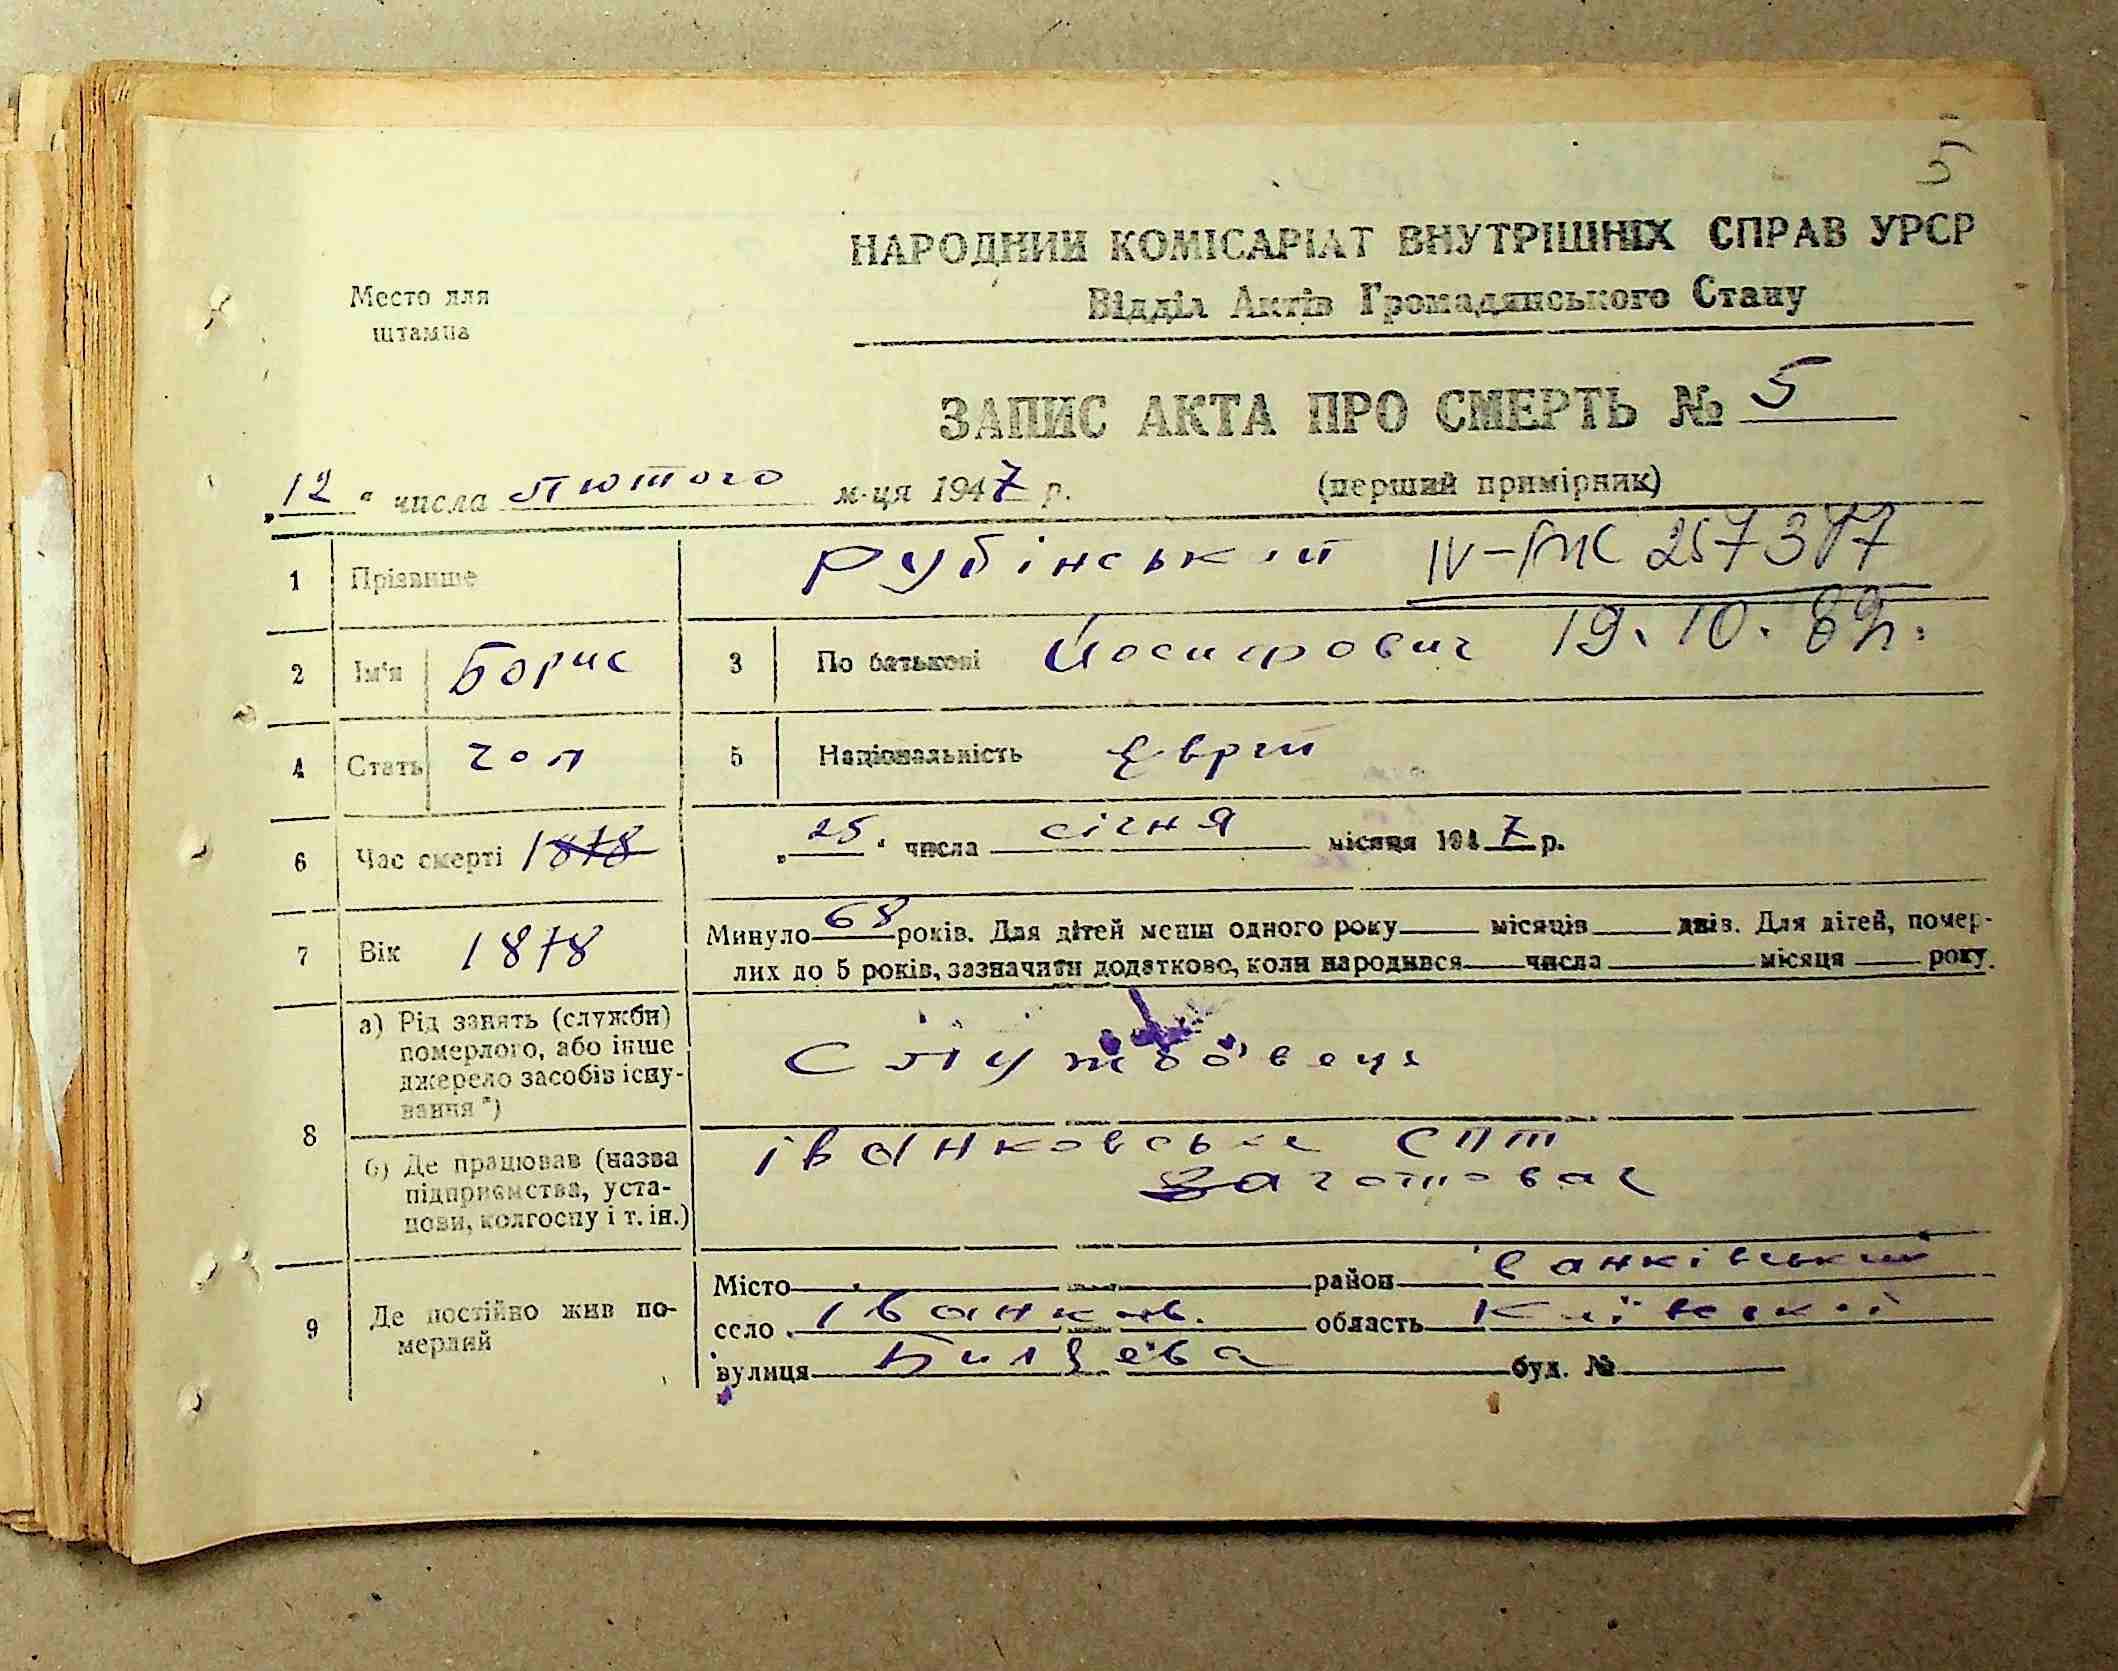 5
НАРОДНИЙ КОМІСАРІАТ ВНУТРІШНІХ СПРАВ УРСР
Відділ Актів Громадянського Стану
Место для
штампа
ЗАПИС АКТА ПРО СМЕРТЬ № 5
„12“ числа лютого м-ця 1947 р. (перший примірник)
1 Прізвище Рубінський IV-БК 257377
2 Ім'я Борис 3 По батькові Йосифович 19.10.89р.
4 Стать чол 5 Національність Єврей
6 Час смерті 1878 „25“ числа січня місяця 1947 р.
7 Вік 1878 Минуло 68 років. Для дітей менш одного року місяців днів. Для дітей, помер-
лих до 5 років, зазначити додатково, коли народився числа місяця року.
8 а) Рід занять (служби)
померлого, або інше
джерело засобів існу-
вання*)
Службовець
б) Де працював (назва
підприємства, уста-
нови, колгоспу і т. ін.)
Іванковське СПТ
Заготовач
9 Де постійно жив по-
мерлий
Місто район Іванківський
село Іванков. область Київської
вулиця буд. №